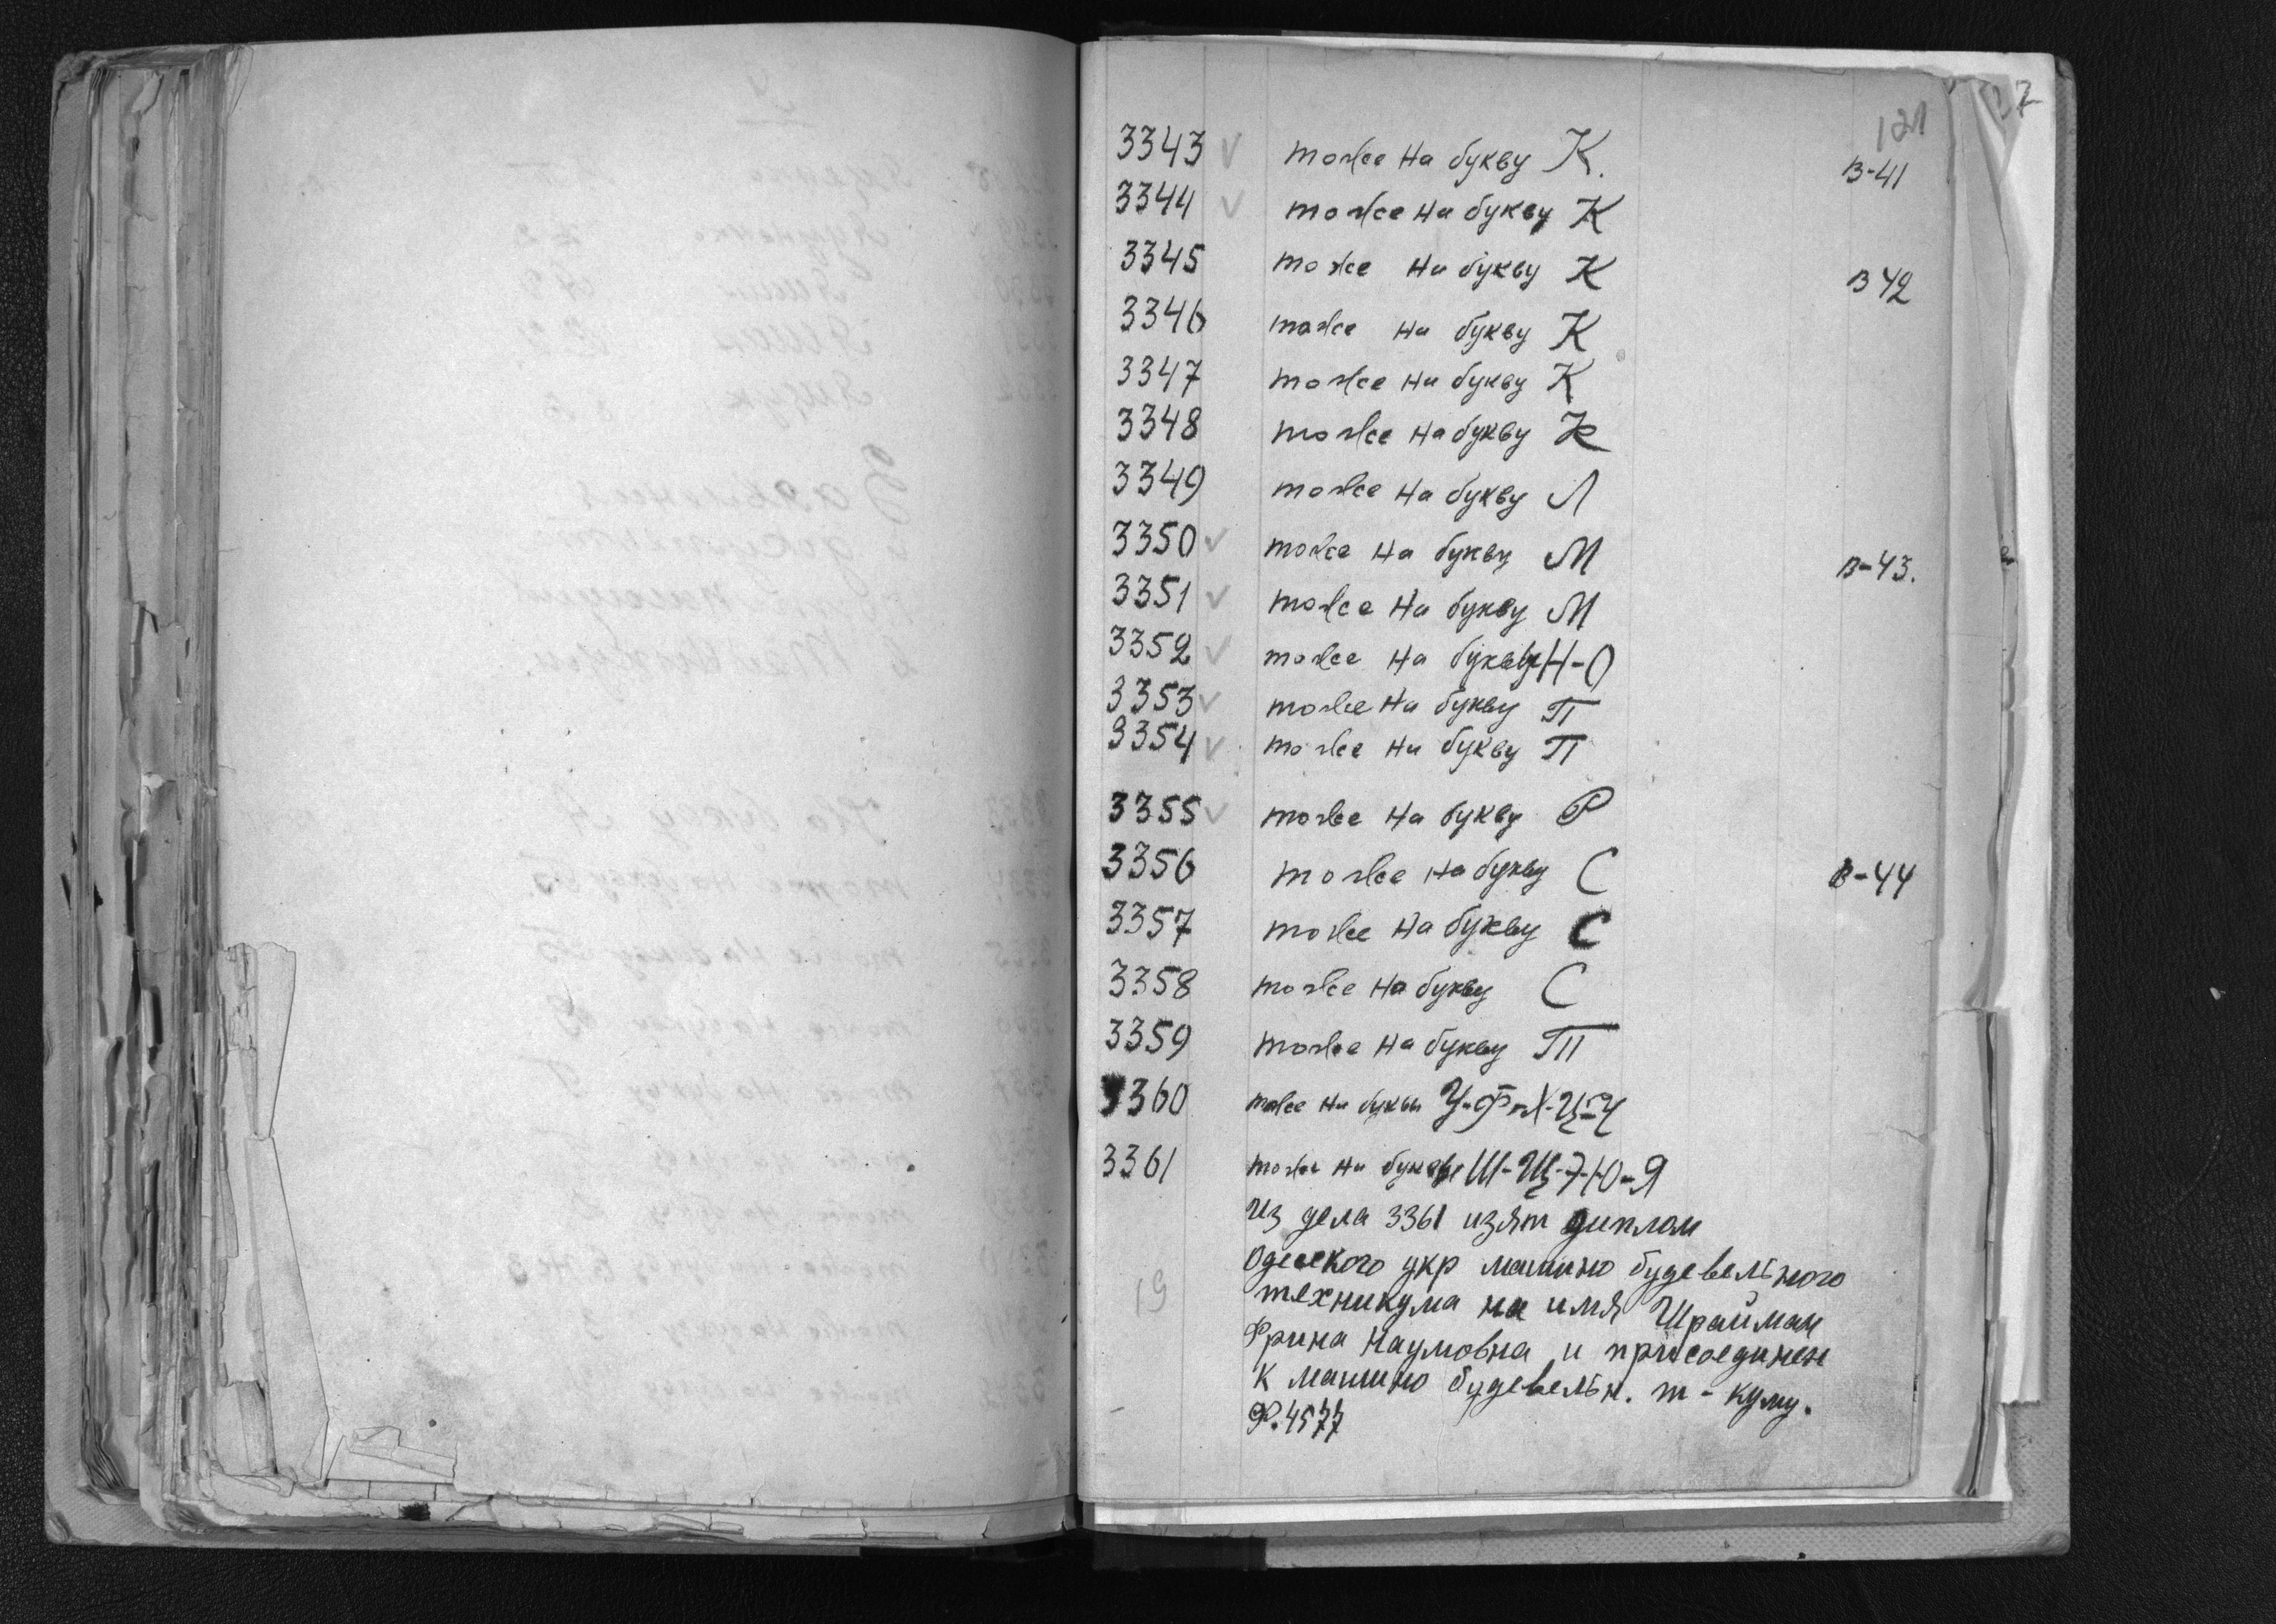 121
3343 ✓ тоже на букву К. В-41
3344 ✓ тоже на букву К
3345 тоже на букву К В 42
3346 тоже на букву К
3347 тоже на букву К
3348 тоже на букву К
3349 тоже на букву Л
3350 ✓ тоже на букву М В-43.
3351 ✓ тоже на букву М
3352 ✓ тоже на буквы Н-О
3353 ✓ тоже на букву П
3354 ✓ тоже на букву П
3355 ✓ тоже на букву Р
3356 тоже на букву С В-44
3357 тоже на букву С
3358 тоже на букву С
3359 тоже на букву Т
3360 тоже на буквы У-Ф-Х-Ц-Ч
3361 тоже на буквы Ш-Щ-Э-Ю-Я
Из дела 3361 изят диплом
Одесского укр машино будевельного
19 техникума на имя Шрайман
Фрина Наумовна и присоединен
к машино будевельн. т-куму.
Ф.4577